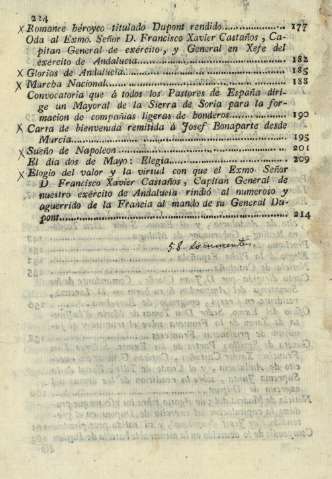 224
x Romance héroyco titulado Dupont rendido........ 177
Oda al Exmo. Señor D. Francisco Xavier Castaños, Ca-
pitan General de exército, y General en Xefe del
exército de Andalucía........ 182
x Glorias de Andalucía........ 185
x Marcha Nacional........ 188
Convocatoria que á todos los Pastores de España diri-
ge un Mayoral de la Sierra de Soria para la for-
macion de compañias ligeras de honderos........ 190
x Carta de bienvenida remitida á Josef Bonaparte desde
Murcia........ 195
x Sueño de Napoleon........ 201
El dia dos de Mayo: Elegía........ 209
x Elogio del valor y la virtud con que el Exmo. Señor
D. Francisco Xavier Castaños, Capitan General de
nuestro exército de Andalucía rindió al numeroso y
aguerrido de la Francia al mando de su General Du-
pont........ 214
58 documentos